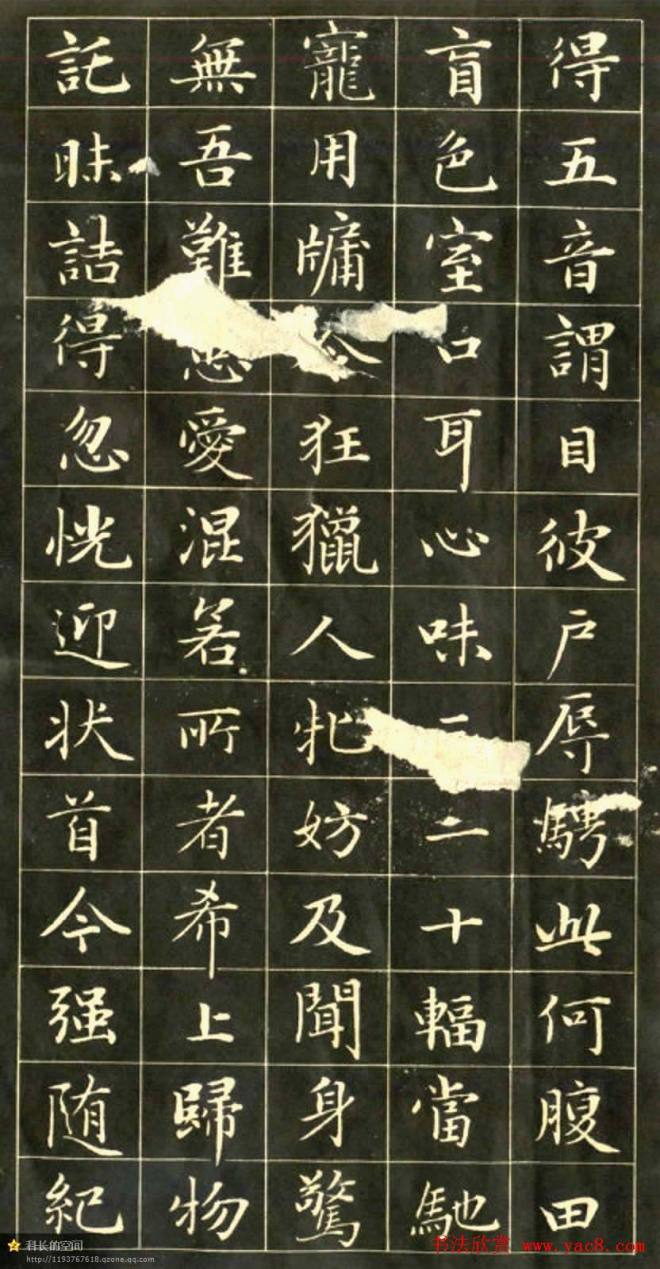 得五音謂目彼户辱騁此何腹田
盲色室口耳心味二十輻當馳
寵用牖狂獵人牝妨及聞身驚
無吾難愛混若所者希上歸物
託昧詰得忽恍迎狀首今强随紀
科长的空间
http://1193767618.qzone.qq.com
书法欣赏 www.yac8.com